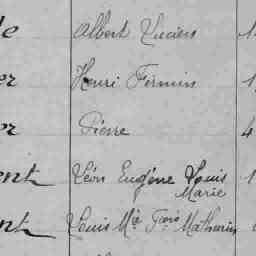 le Albert Lucien 1
er Henri Firmin 1
er Pierre 4
ent Léon Eugène Louis 1
Marie
nt Louis Mie Fçois Mathurin